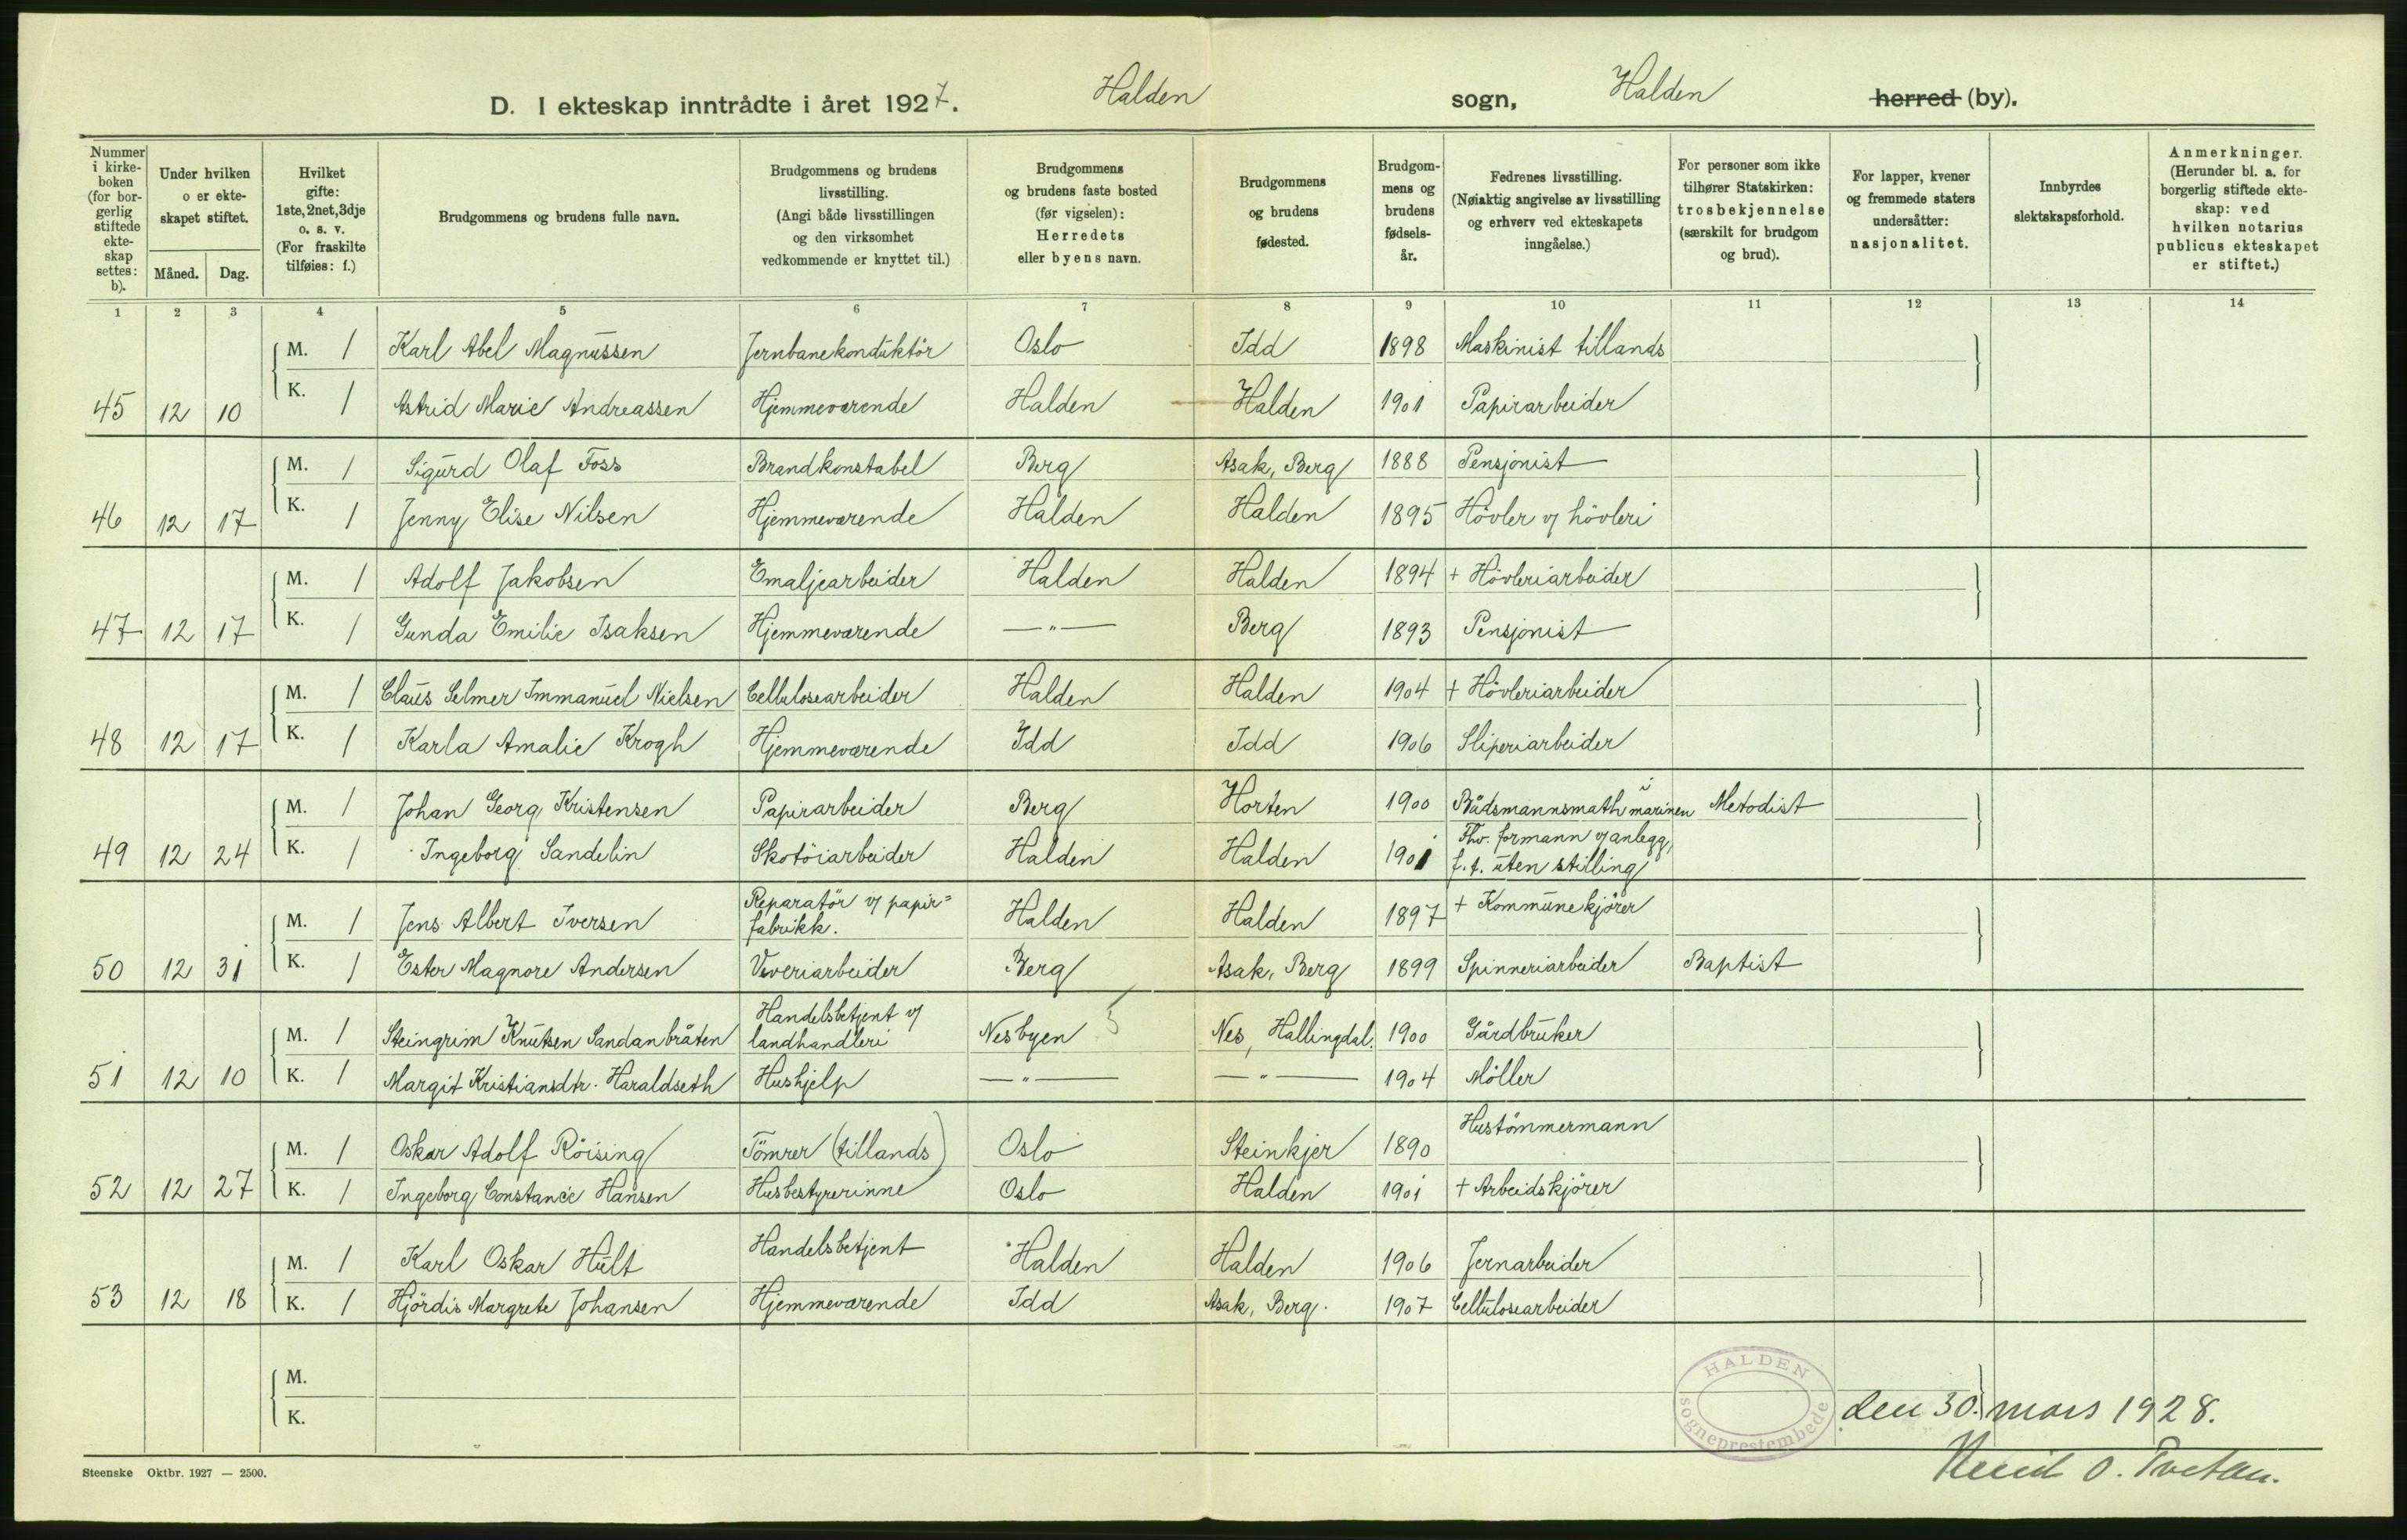 D. I ekteskap inntrådte i året 1927. Halden sogn, Halden herred (by).
Nummer i kirkeboken (for borgerlig stiftede ekteskap settes: b).
Under hvilken o er ekteskapet stiftet.
Måned. Dag.
Hvilket gifte: 1ste, 2net, 3dje o. s. v. (For fraskilte tilføies: f.)
Brudgommens og brudens fulle navn.
Brudgommens og brudens livsstilling. (Angi både livsstillingen og den virksomhet vedkommende er knyttet til.)
Brudgommens og brudens faste bosted (før vigselen): Herredets eller byens navn.
Brudgommens og brudens fødested.
Brudgommens og brudens fødselsår.
Fedrenes livsstilling. (Nøiaktig angivelse av livsstilling og erhverv ved ekteskapets inngåelse.)
For personer som ikke tilhører Statskirken: trosbekjennelse (særskilt for brudgom og brud).
For lapper, kvener og fremmede staters undersåtter: nasjonalitet.
Innbyrdes slektskapsforhold.
Anmerkninger. (Herunder bl. a. for borgerlig stiftede ekteskap: ved hvilken notarius publicus ekteskapet er stiftet.)
1 2 3 4 5 6 7 8 9 10 11 12 13 14
M. 1 Karl Abel Magnussen Jernbanekonduktör Oslo Idd 1898 Maskinist tillands
45 12 10 K. 1 Astrid Marie Andreassen Hjemmeværende Halden Halden 1901 Papirarbeider
M. 1 Sigurd Olaf Foss Brandkonstabel Berg Asak, Berg 1888 Pensjonist
46 12 17 K. 1 Jenny Elise Nilsen Hjemmeværende Halden Halden 1895 Hövler v/ hövleri
M. 1 Adolf Jakobsen Emaljearbeider Halden Halden 1894 + Hövleriarbeider
47 12 17 K. 1 Gunda Emilie Isaksen Hjemmeværende —"— Berg 1893 Pensjonist
M. 1 Claus Selmer Immanuel Nielsen Cellulosearbeider Halden Halden 1904 + Hövleriarbeider
48 12 17 K. 1 Karla Amalie Krogh Hjemmeværende Idd Idd 1906 Sliperiarbeider
M. 1 Johan Georg Kristensen Papirarbeider Berg Horten 1900 Bådsmannsmath i marinen Metodist
49 12 24 K. 1 Ingeborg Sandelin Skotöiarbeider Halden Halden 1901 Fhv. formann v/ anlegg, f. t. uten stilling
M. 1 Jens Albert Iversen Reparatör v/ papir=fabrikk. Halden Halden 1897 + Kommunekjörer
50 12 31 K. 1 Ester Magnore Andersen Veveriarbeider Berg Asak, Berg 1899 Spinneriarbeider Baptist
M. 1 Steingrim Knutsen Sandanbråten Handelsbetjent v/ landhandleri Nesbyen 5 Nes, Hallingdal. 1900 Gårdbruker
51 12 10 K. 1 Margit Kristiansdtr. Haraldseth Hushjelp —"— —"— 1904 Möller
M. 1 Oskar Adolf Röising Tömrer (tillands) Oslo Steinkjer 1890 Hustömmermann
52 12 27 K. 1 Ingeborg Constance Hansen Husbestyrerinne Oslo Halden 1901 + Arbeidskjörer
M. 1 Karl Oskar Hult Handelsbetjent Halden Halden 1906 Jernarbeider
53 12 18 K. 1 Hjördis Margrete Johansen Hjemmeværende Idd Asak, Berg. 1907 Cellulosearbeider
M.
K.
HALDEN sogneprestembede
den 30. mars 1928.
Steenske Oktbr. 1927 — 2500.